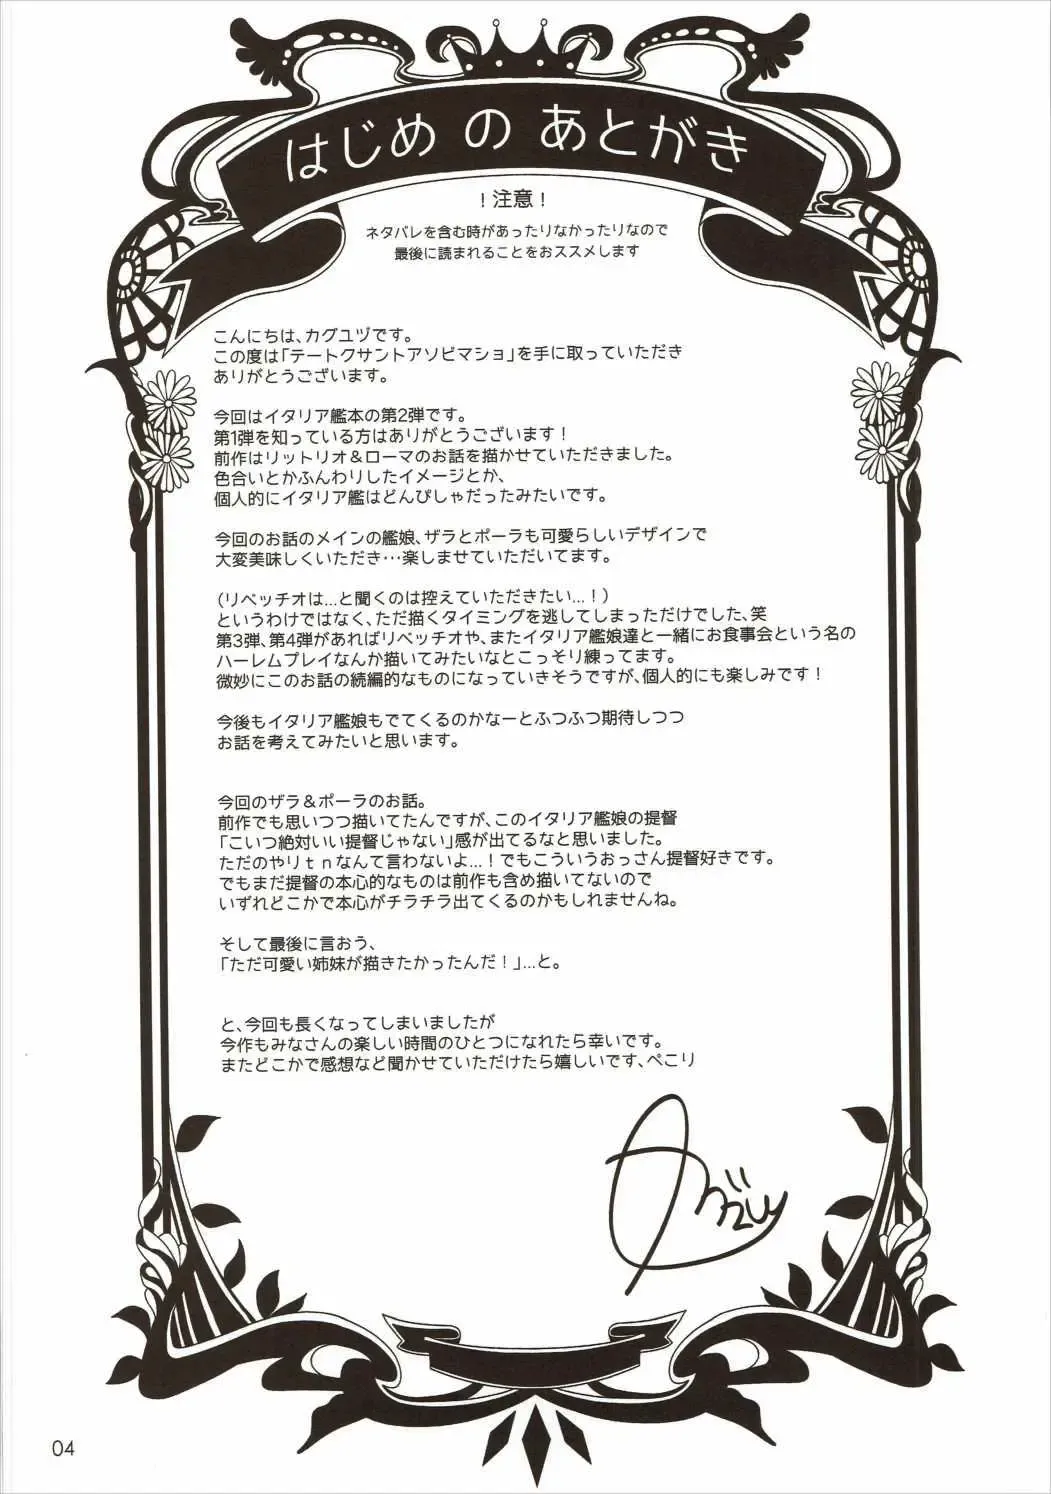 はじめ の あとがき
！注意！
ネタバレを含む時があったりなかったりなので
最後に読まれることをおススメします
こんにちは、カグユヅです。
この度は「テートクサントアソビマショ」を手に取っていただき
ありがとうございます。
今回はイタリア艦本の第2弾です。
第1弾を知っている方はありがとうございます！
前作はリットリオ＆ローマのお話を描かせていただきました。
色合いとかふんわりしたイメージとか、
個人的にイタリア艦はどんぴしゃだったみたいです。
今回のお話のメインの艦娘、ザラとポーラも可愛らしいデザインで
大変美味しくいただき…楽しませていただいてます。
（リベッチオは…と聞くのは控えていただきたい…！）
というわけではなく、ただ描くタイミングを逃してしまっただけでした、笑
第3弾、第4弾があればリベッチオや、またイタリア艦娘達と一緒にお食事会という名の
ハーレムプレイなんか描いてみたいなとこっそり練ってます。
微妙にこのお話の続編的なものになっていきそうですが、個人的にも楽しみです！
今後もイタリア艦娘もでてくるのかなーとふつふつ期待しつつ
お話を考えてみたいと思います。
今回のザラ＆ポーラのお話。
前作でも思いつつ描いてたんですが、このイタリア艦娘の提督
「こいつ絶対いい提督じゃない」感が出てるなと思いました。
ただのやりｔｎなんて言わないよ…！でもこういうおっさん提督好きです。
でもまだ提督の本心的なものは前作も含め描いてないので
いずれどこかで本心がチラチラ出てくるのかもしれませんね。
そして最後に言おう、
「ただ可愛い姉妹が描きたかったんだ！」…と。
と、今回も長くなってしまいましたが
今作もみなさんの楽しい時間のひとつになれたら幸いです。
またどこかで感想など聞かせていただけたら嬉しいです、ぺこり
04